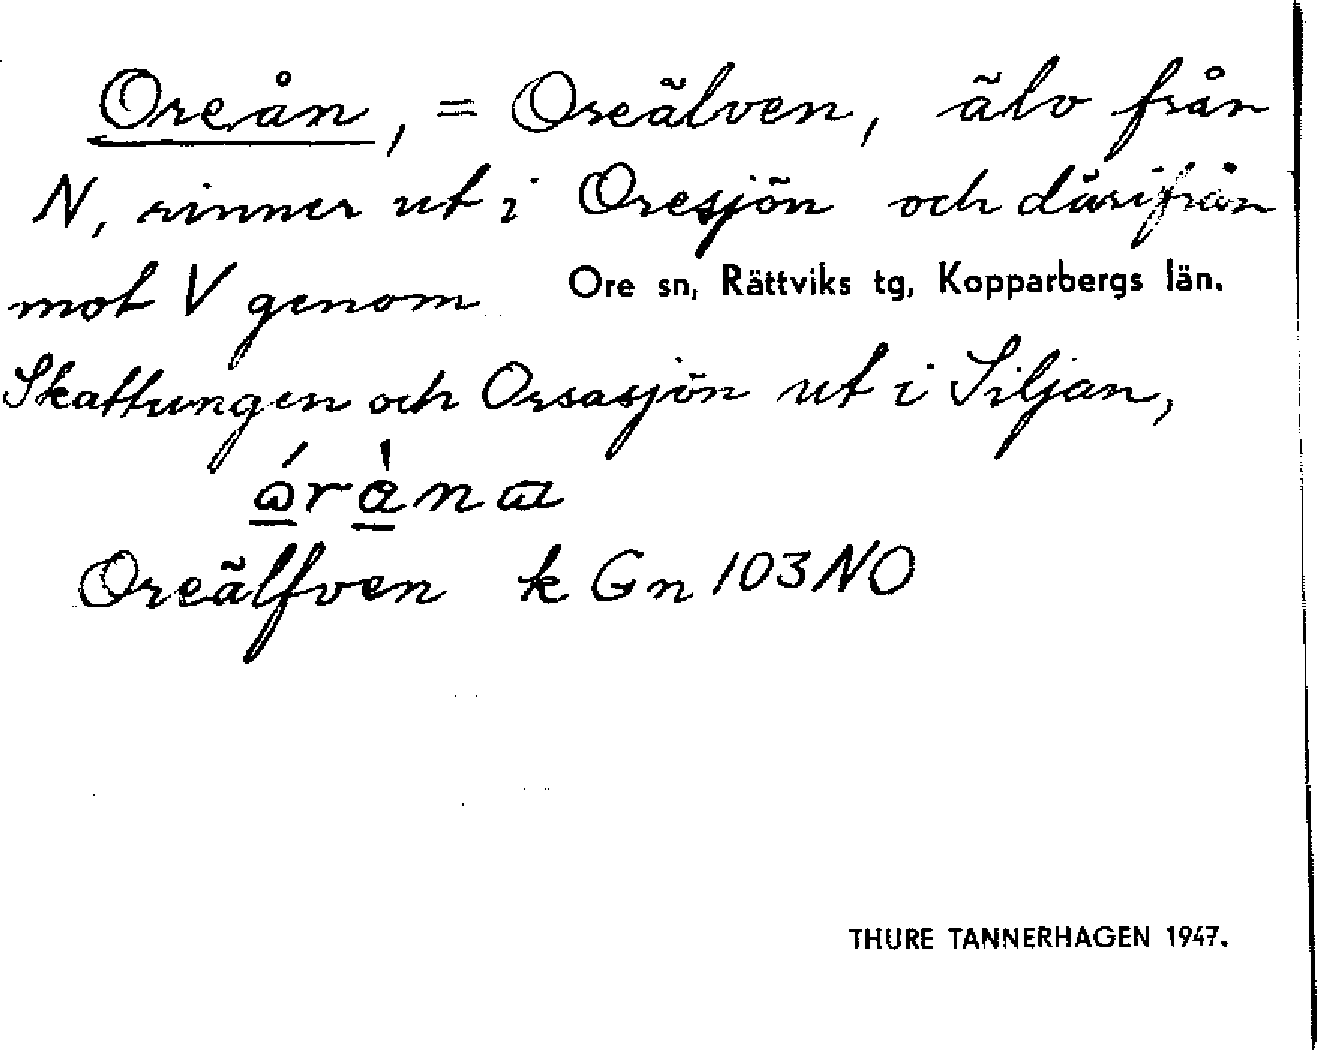 Oreån, = Oreälven, älv från
N, rinner ut i Oresjön och därifrån
mot V genom Ore sn, Rättviks tg, Kopparbergs län.
Skattungen och Orsasjön ut i Siljan,
Oreälfven k Gn 103 NO
THURE TANNERHAGEN 1947.